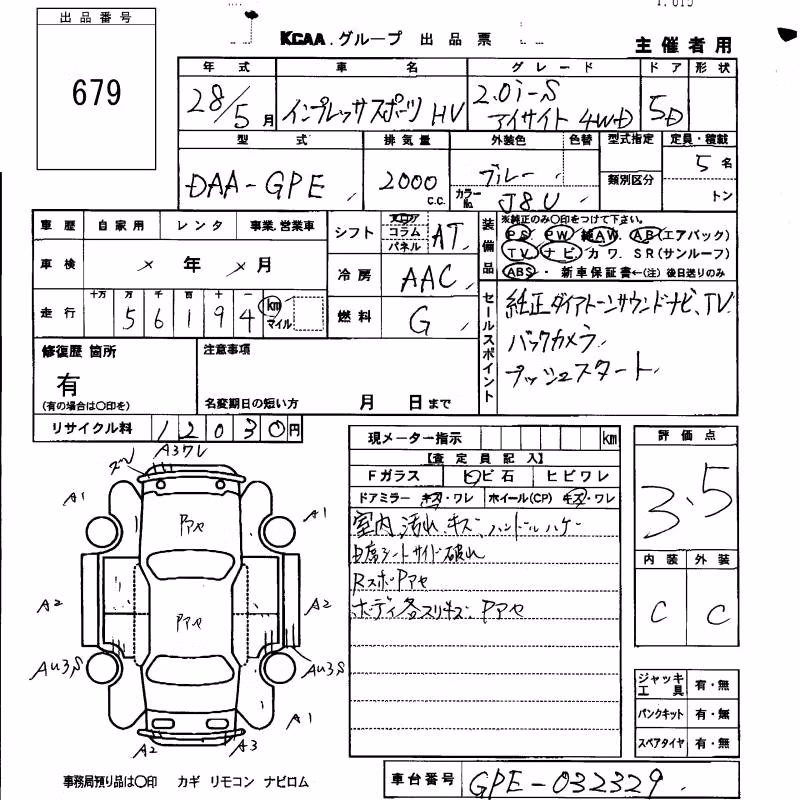 出品番号
679
KCAA.グループ 出品票
主催者用
年式 車名 グレード ドア 形状
28/5月 インプレッサスポーツ HV 2.0i-S アイサイト 4WD 5D
型式 排気量 外装色 色替 型式指定 定員・積載
DAA-GPE 2000 c.c. ブルー 5名
カラーNo. J8U 類別区分 トン
車歴 自家用 レンタ 事業、営業車
車検 × 年 × 月
走行 十万 万 千 百 十 一
5 6 1 9 4 km マイル
シフト フロア コラム パネル AT
冷房 AAC
燃料 G
装備品
※純正のみ〇印をつけて下さい。
PS PW 純AW. AB(エアバック)
TV ナビ. カワ. SR(サンルーフ)
ABS・新車保証書←(注)後日送りのみ
セールスポイント
純正ダイアトーンサウンドナビ、TV
バックカメラ
プッシュスタート
修復歴 箇所
有
(有の場合は〇印を)
注意事項
名変期日の短い方 月 日まで
リサイクル料 12030円
現メーター指示 km
【査定員記入】
Fガラス トビ石 ヒビワレ
ドアミラー キズ・ワレ ホイール(CP) キズ・ワレ
室内 汚れ キズ ハンドルハゲ
Rスポ Pアセ
ボディ各スリキズ、Pアセ
評価点
3.5
内装 外装
C C
ジャッキ工具 有・無
パンクキット 有・無
スペアタイヤ 有・無
A3ワレ
A1 A1
Pアセ
A2 A2
Pアセ
AU3S AU3S
A1
A2 A3
事務局預り品は〇印 カギ リモコン ナビロム
車台番号 GPE-032329